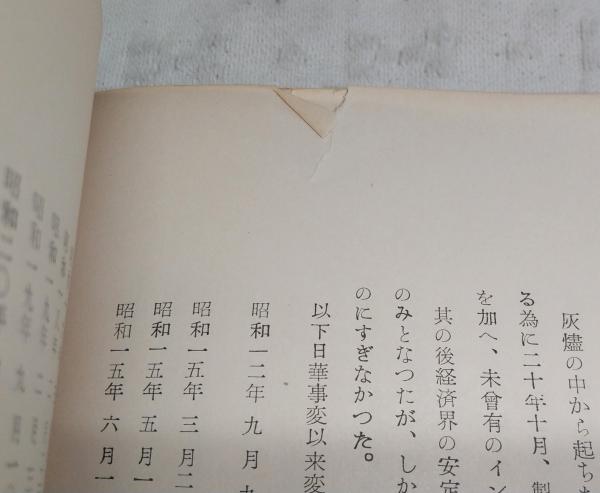 灰燼の中から起ち
る為に二十年十月、製
を加へ、未曾有のイン
其の後経済界の安定
のみとなつたが、しか
のにすぎなかつた。
以下日華事変以来変
昭和一二年 九月
昭和一五年 三月二
昭和一五年 五月一
昭和一五年 六月一
昭和一九年 二
昭和一九年 九月
昭和二〇年